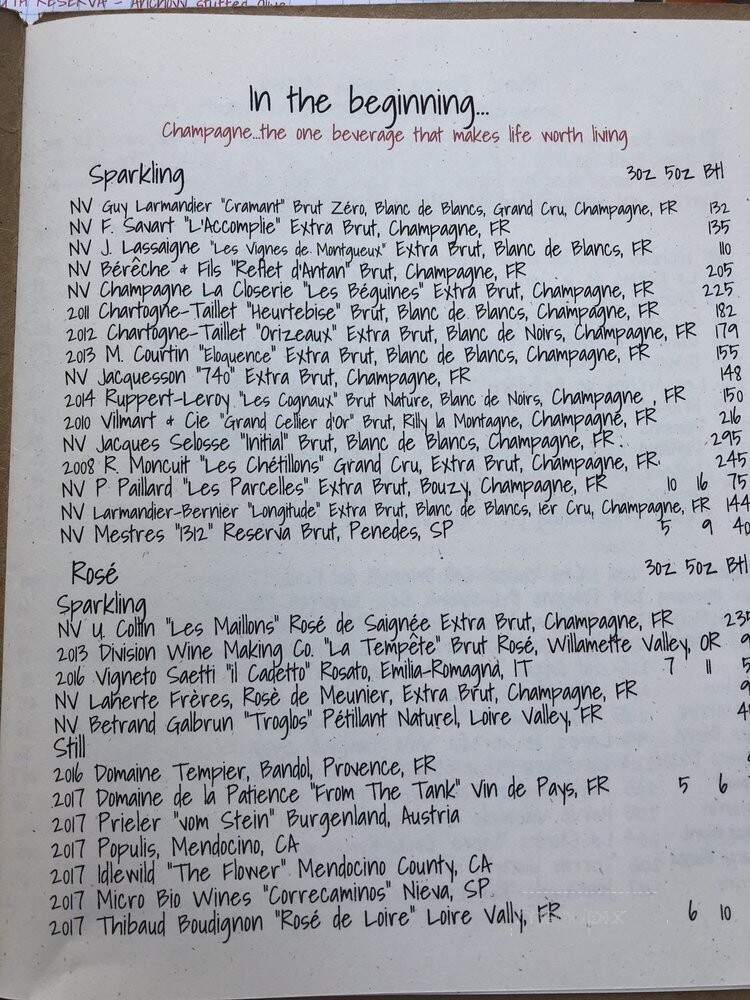 RESERVA - ANCHOVY stuffed olive
In the beginning...
Champagne...the one beverage that makes life worth living
Sparkling 3oz 5oz Btl
NV Guy Larmandier "Cramant" Brut Zéro, Blanc de Blancs, Grand Cru, Champagne, FR 132
NV F. Savart "L'Accomplie" Extra Brut, Champagne, FR 135
NV J. Lassaigne "Les Vignes de Montgueux" Extra Brut, Blanc de Blancs, FR 110
NV Bérêche & Fils "Reflet d'Antan" Brut, Champagne, FR 205
NV Champagne La Closerie "Les Béguines" Extra Brut, Champagne, FR 225
2011 Chartogne-Taillet "Heurtebise" Brut, Blanc de Blancs, Champagne, FR 182
2012 Chartogne-Taillet "Orizeaux" Extra Brut, Blanc de Noirs, Champagne, FR 179
2013 M. Courtin "Eloquence" Extra Brut, Blanc de Blancs, Champagne, FR 155
NV Jacquesson "740" Extra Brut, Champagne, FR 148
2014 Ruppert-Leroy "Les Cognaux" Brut Nature, Blanc de Noirs, Champagne , FR 150
2010 Vilmart & Cie "Grand Cellier d'Or" Brut, Rilly la Montagne, Champagne, FR 216
NV Jacques Selosse "Initial" Brut, Blanc de Blancs, Champagne, FR. 295
2008 R. Moncuit "Les Chétillons" Grand Cru, Extra Brut, Champagne, FR. 245
NV P. Paillard "Les Parcelles" Extra Brut, Bouzy, Champagne, FR 10 16 75
NV Larmandier-Bernier "Longitude" Extra Brut, Blanc de Blancs, 1er Cru, Champagne, FR 144
NV Mestres "1312" Reserva Brut, Penedes, SP 5 9 40
Rosé 3oz 5oz Btl
Sparkling
NV U. Collin "Les Maillons" Rosé de Saignée Extra Brut, Champagne, FR 235
2013 Division Wine Making Co. "La Tempête" Brut Rosé, Willamette Valley, OR
2016 Vigneto Saetti "il Cadetto" Rosato, Emilia-Romagna, IT 7 11
NV Laherte Frères, Rosè de Meunier, Extra Brut, Champagne, FR
NV Betrand Galbrun "Troglos" Pétillant Naturel, Loire Valley, FR
Still
2016 Domaine Tempier, Bandol, Provence, FR
2017 Domaine de la Patience "From The Tank" Vin de Pays, FR 5 6
2017 Prieler "vom Stein" Burgenland, Austria
2017 Populis, Mendocino, CA
2017 Idlewild "The Flower" Mendocino County, CA
2017 Micro Bio Wines "Correcaminos" Nieva, SP
2017 Thibaud Boudignon "Rosé de Loire" Loire Vally, FR 6 10